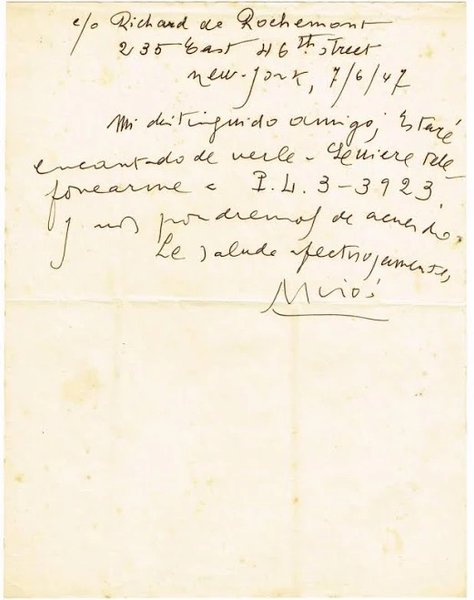 c/o Richard de Rochemont
235 East 46th street
New-York, 7/6/47
Mi distinguido amigo; Estaré
encantado de verle - 
fonearme a P.L. 3-3923,
y nos pondremos de acuerdo.
Le saluda afectuosamente,
Miró